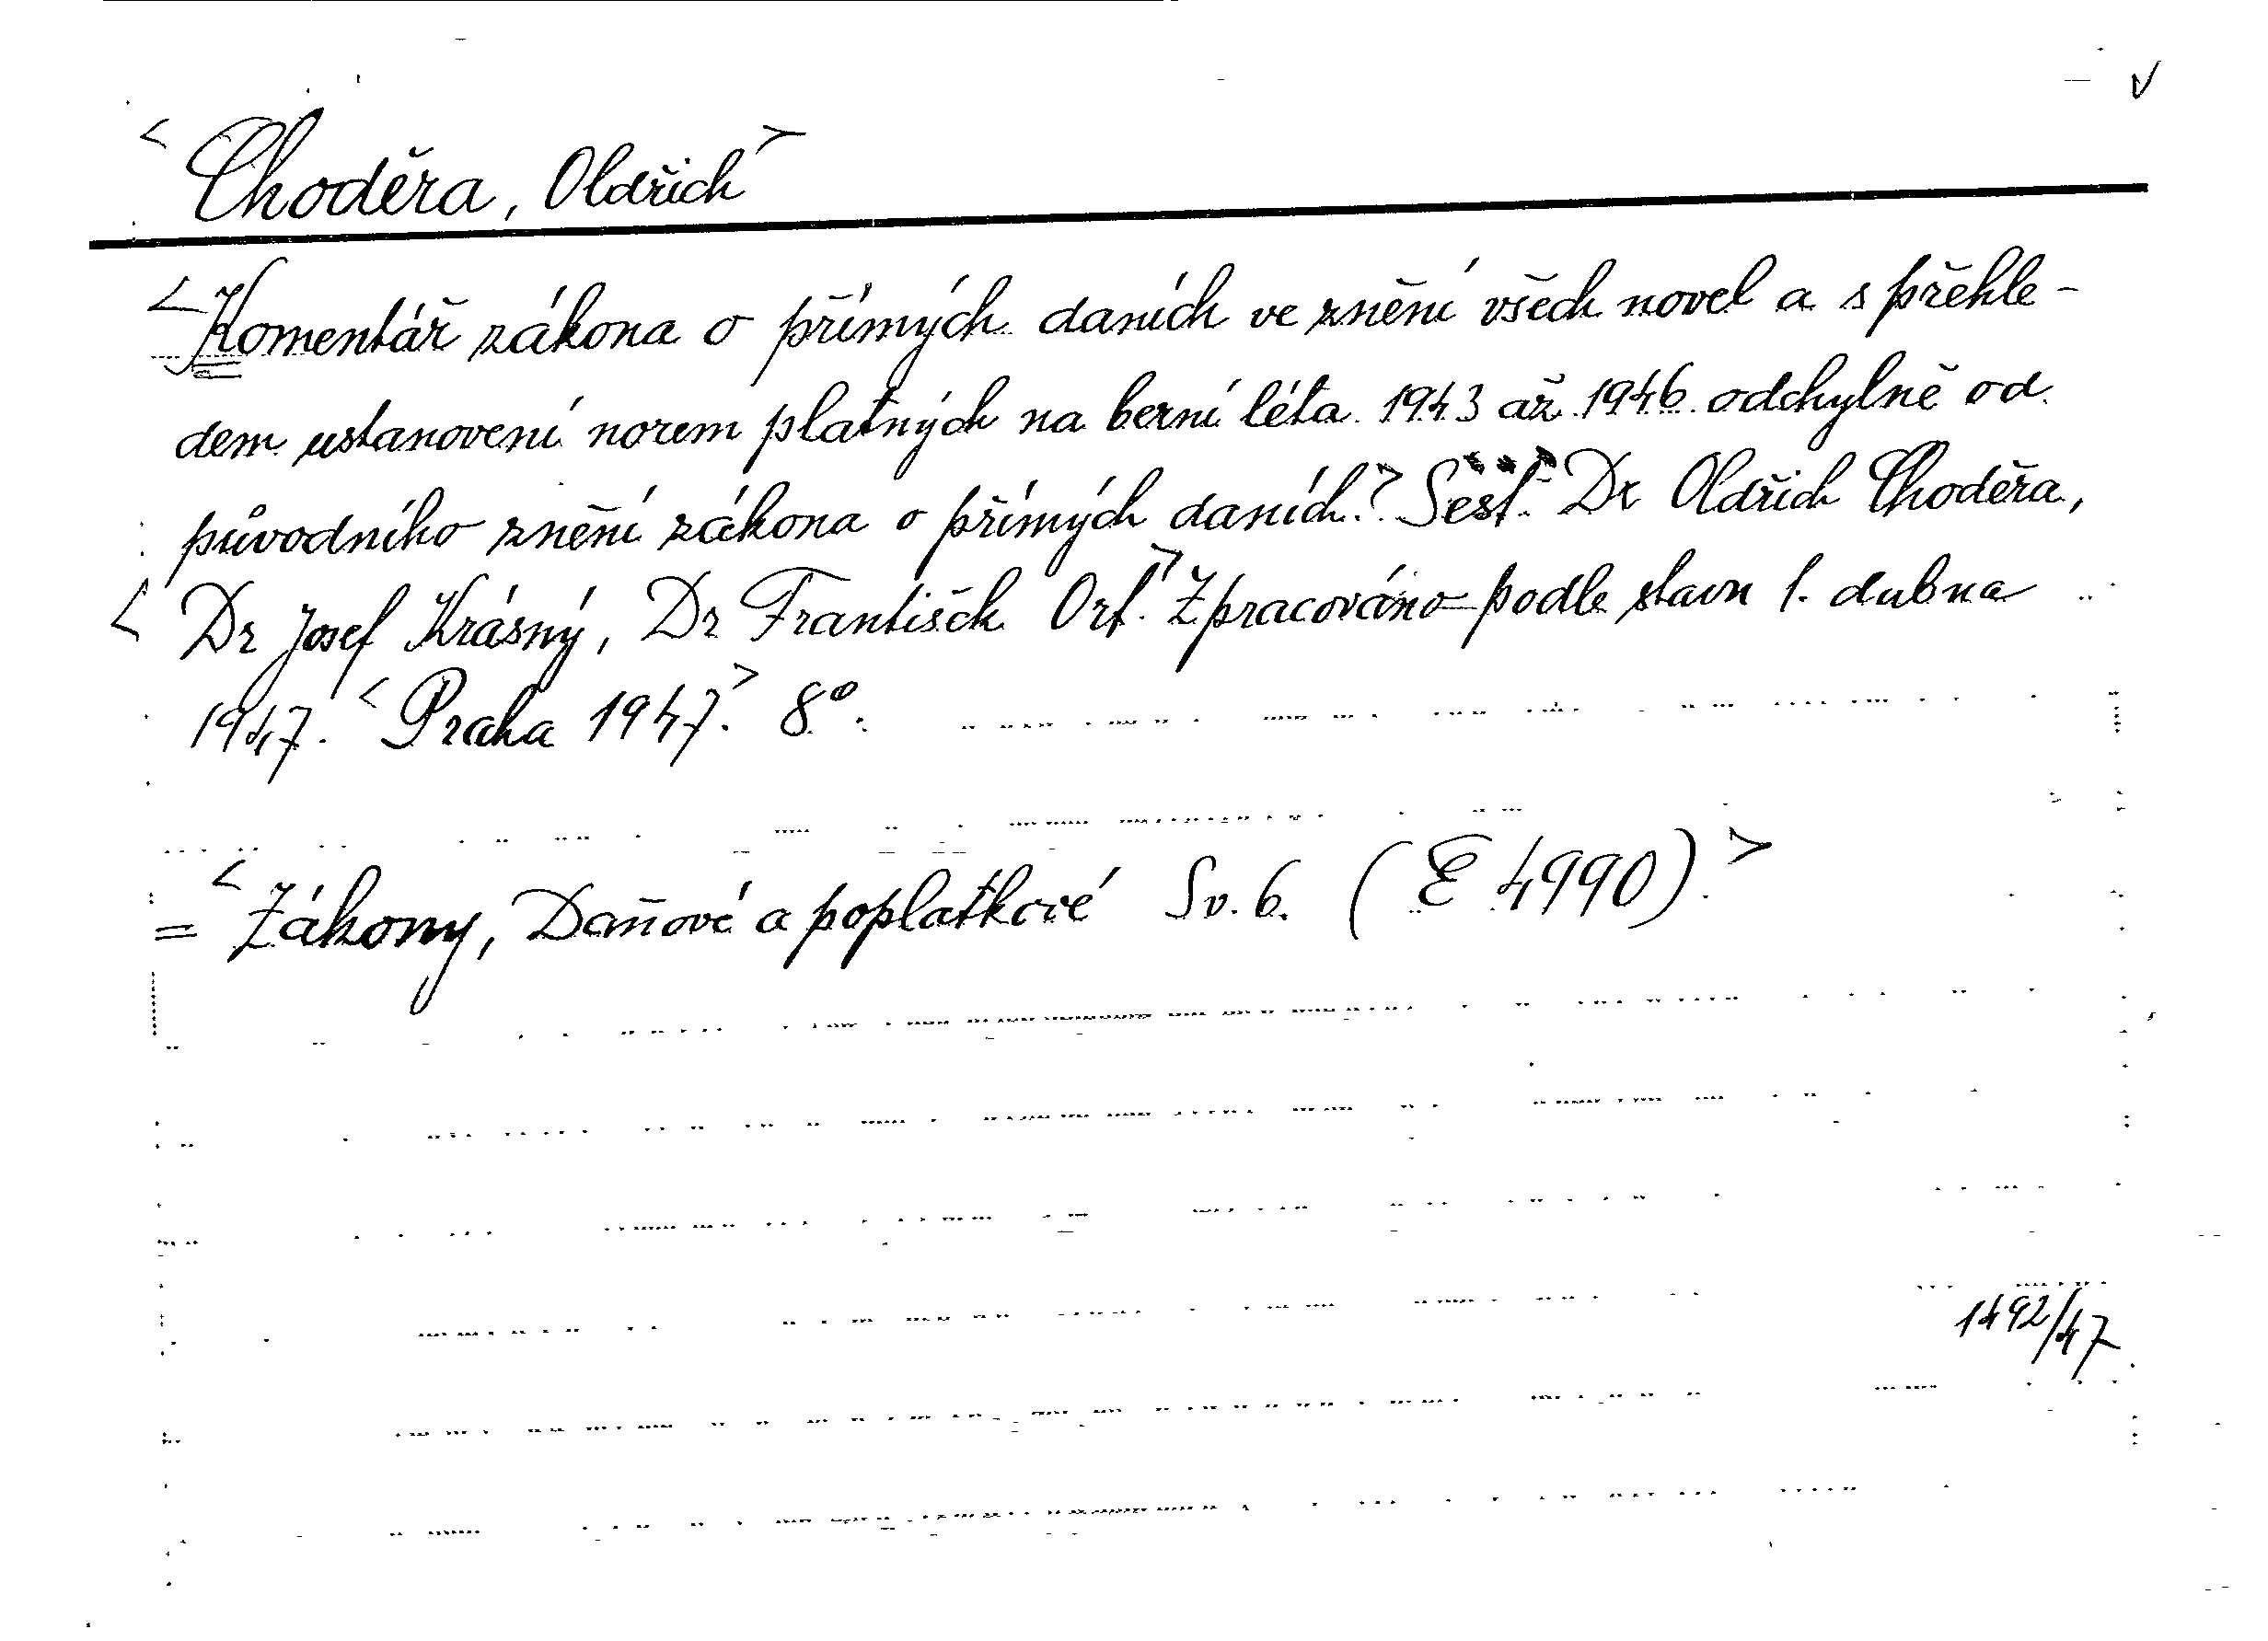 < Choděra, Oldřich >
< Komentář zákona o přímých daních ve znění všech novel a s přehle-
dem ustanovení norem platných na berní léta 1943 až 1946 odchylně od
původního znění zákona o přímých daních.> Sest. Dr Oldřich Choděra,
< Dr Josef Krásný, Dr František Ort.> Zpracováno podle stavu 1. dubna
1947. < Praha 1947.> 8°.
= < Zákony, Daňové a poplatkové Sv. 6. (E 4990).>
1492/47